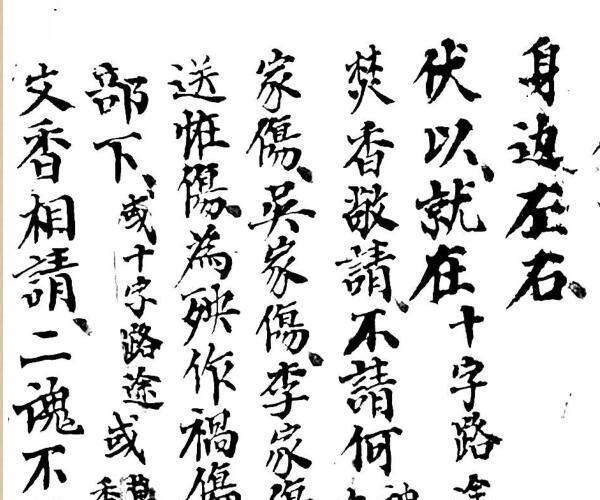 身边左右、
伏以、就在十字路途
焚香敬請、不請何
家傷、吳家傷、李家傷
送怪傷、為殃作禍傷
部下、或十字路途或
文香相請、二魂不